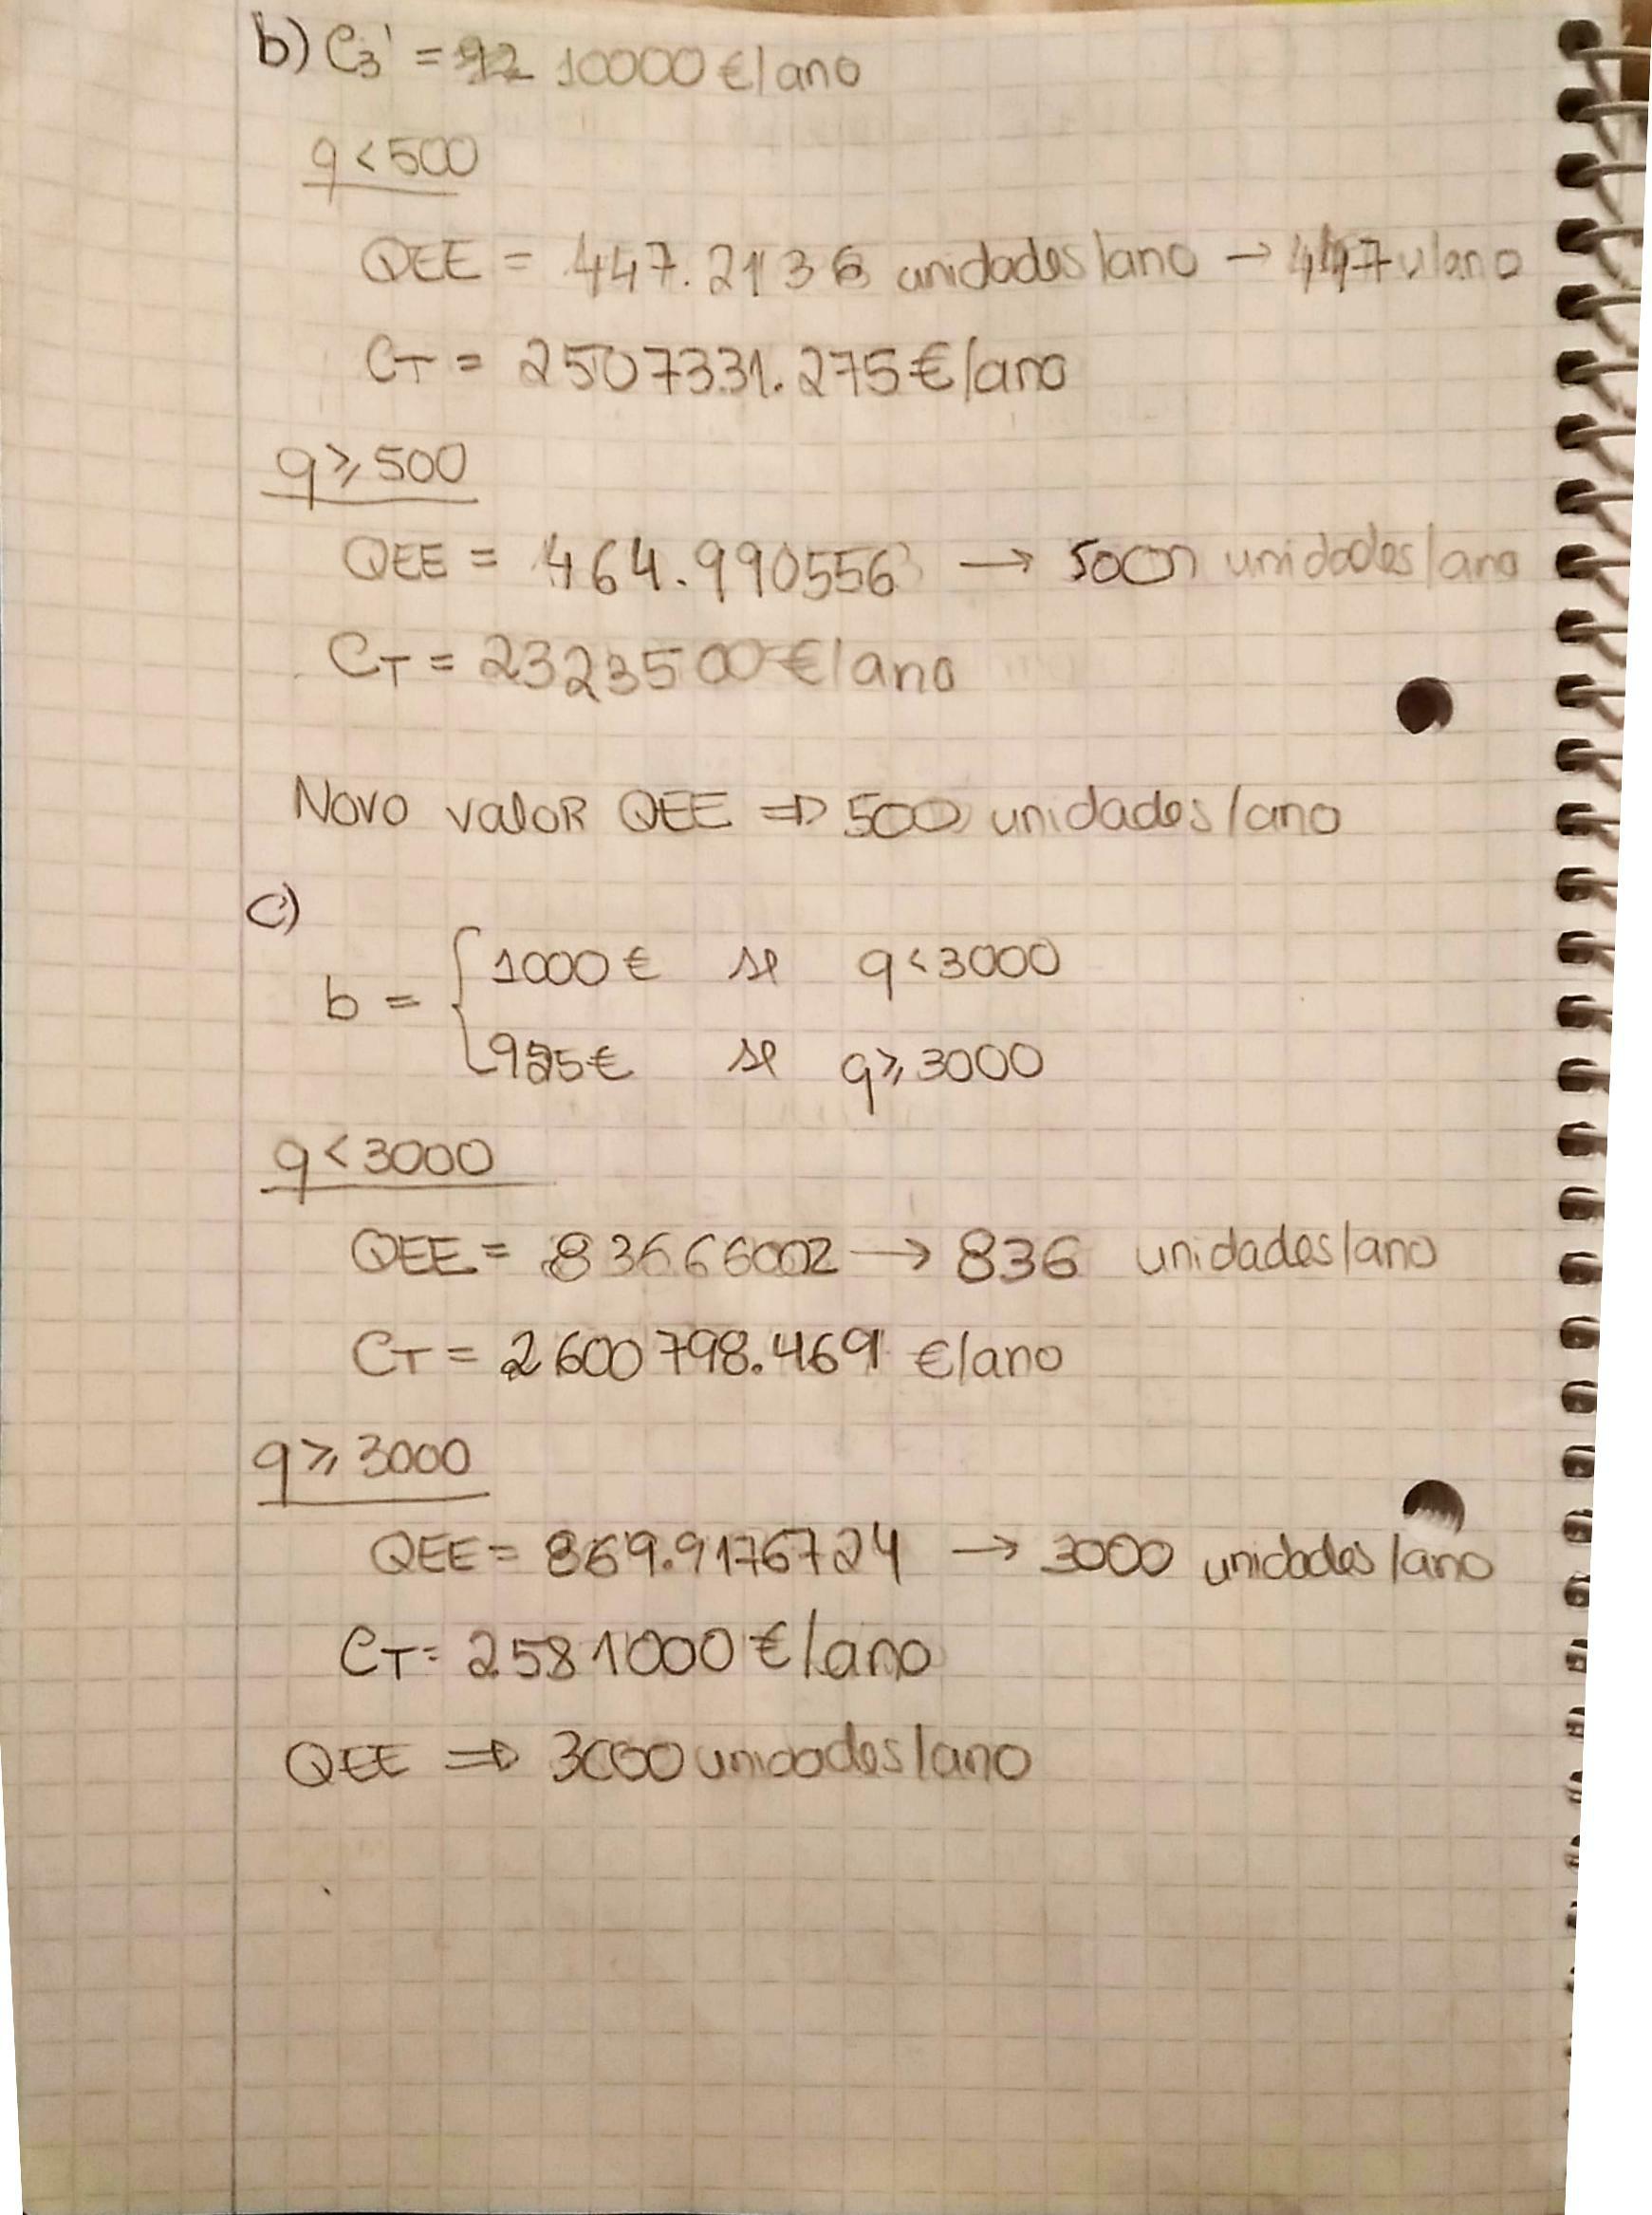 b) C3' = 10000 €/ano
q < 500
QEE = 447.2136 unidades/ano → 447 u/ano
CT = 2507331.275 €/ano
q ≥ 500
QEE = 464.990556 → 500 unidades/ano
CT = 2323500 €/ano
Novo valor QEE ⇒ 500 unidades/ano
c)
b = { 1000 € se q < 3000
925 € se q ≥ 3000
q < 3000
QEE = 836.66002 → 836 unidades/ano
CT = 2600798.469 €/ano
q ≥ 3000
QEE = 869.9176724 → 3000 unidades/ano
CT = 2581000 €/ano
QEE ⇒ 3000 unidades/ano